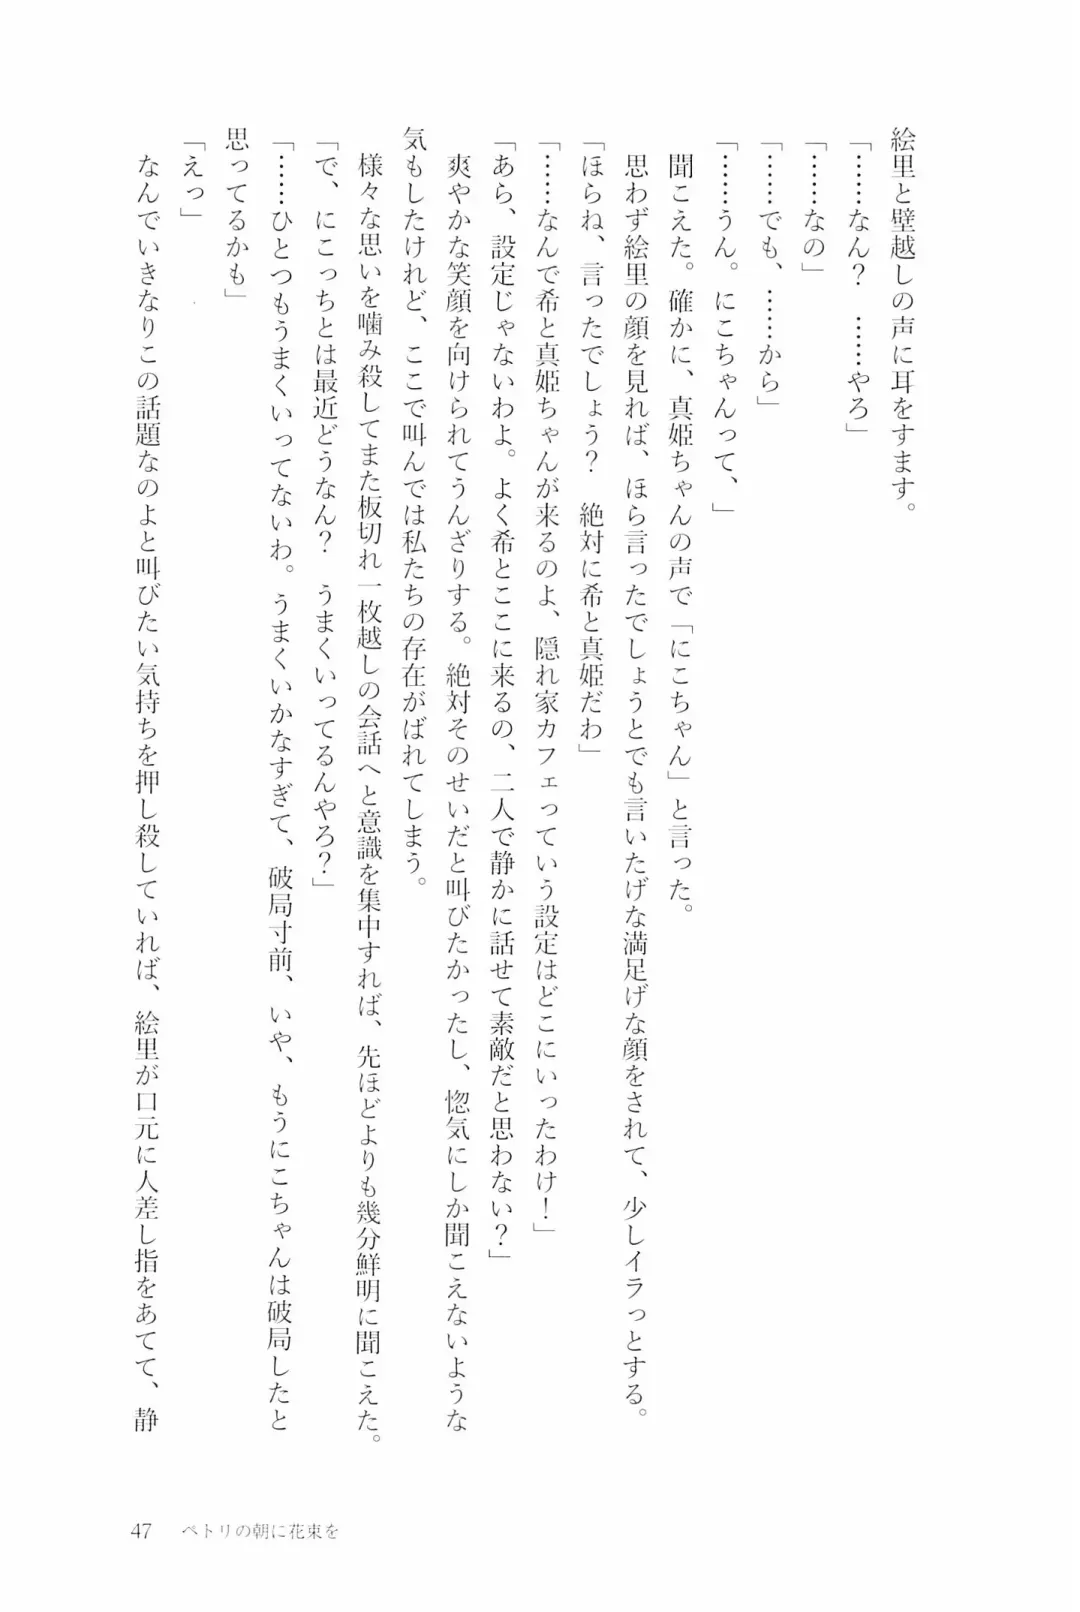 絵里と壁越しの声に耳をすます。
「……なん？　……やろ」
「……なの」
「……でも、……から」
「……うん。にこちゃんって、」
聞こえた。確かに、真姫ちゃんの声で「にこちゃん」と言った。
思わず絵里の顔を見れば、ほら言ったでしょうとでも言いたげな満足げな顔をされて、少しイラっとする。
「ほらね、言ったでしょう？　絶対に希と真姫だわ」
「……なんで希と真姫ちゃんが来るのよ、隠れ家カフェっていう設定はどこにいったわけ！」
「あら、設定じゃないわよ。よく希とここに来るの、二人で静かに話せて素敵だと思わない？」
爽やかな笑顔を向けられてうんざりする。絶対そのせいだと叫びたかったし、惚気にしか聞こえないような
気もしたけれど、ここで叫んでは私たちの存在がばれてしまう。
様々な思いを噛み殺してまた板切れ一枚越しの会話へと意識を集中すれば、先ほどよりも幾分鮮明に聞こえた。
「で、にこっちとは最近どうなん？　うまくいってるんやろ？」
「……ひとつもうまくいってないわ。うまくいかなすぎて、破局寸前、いや、もうにこちゃんは破局したと
思ってるかも」
「えっ」
なんでいきなりこの話題なのよと叫びたい気持ちを押し殺していれば、絵里が口元に人差し指をあてて、静
47　ペトリの朝に花束を